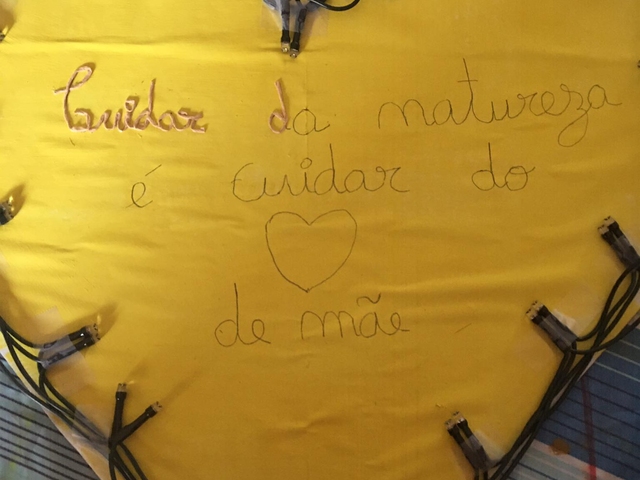 Cuidar da natureza
é cuidar do
de mãe